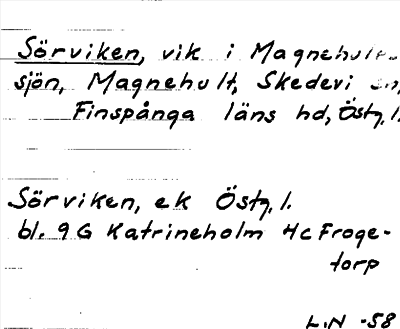 Sörviken, vik i Magnehults-
sjön, Magnehult, Skedevi sn,
Finspånga läns hd, Östg, l.
Sörviken, ek Östg, l.
bl. 9G Katrineholm 4c Froge-
torp
L.N -58